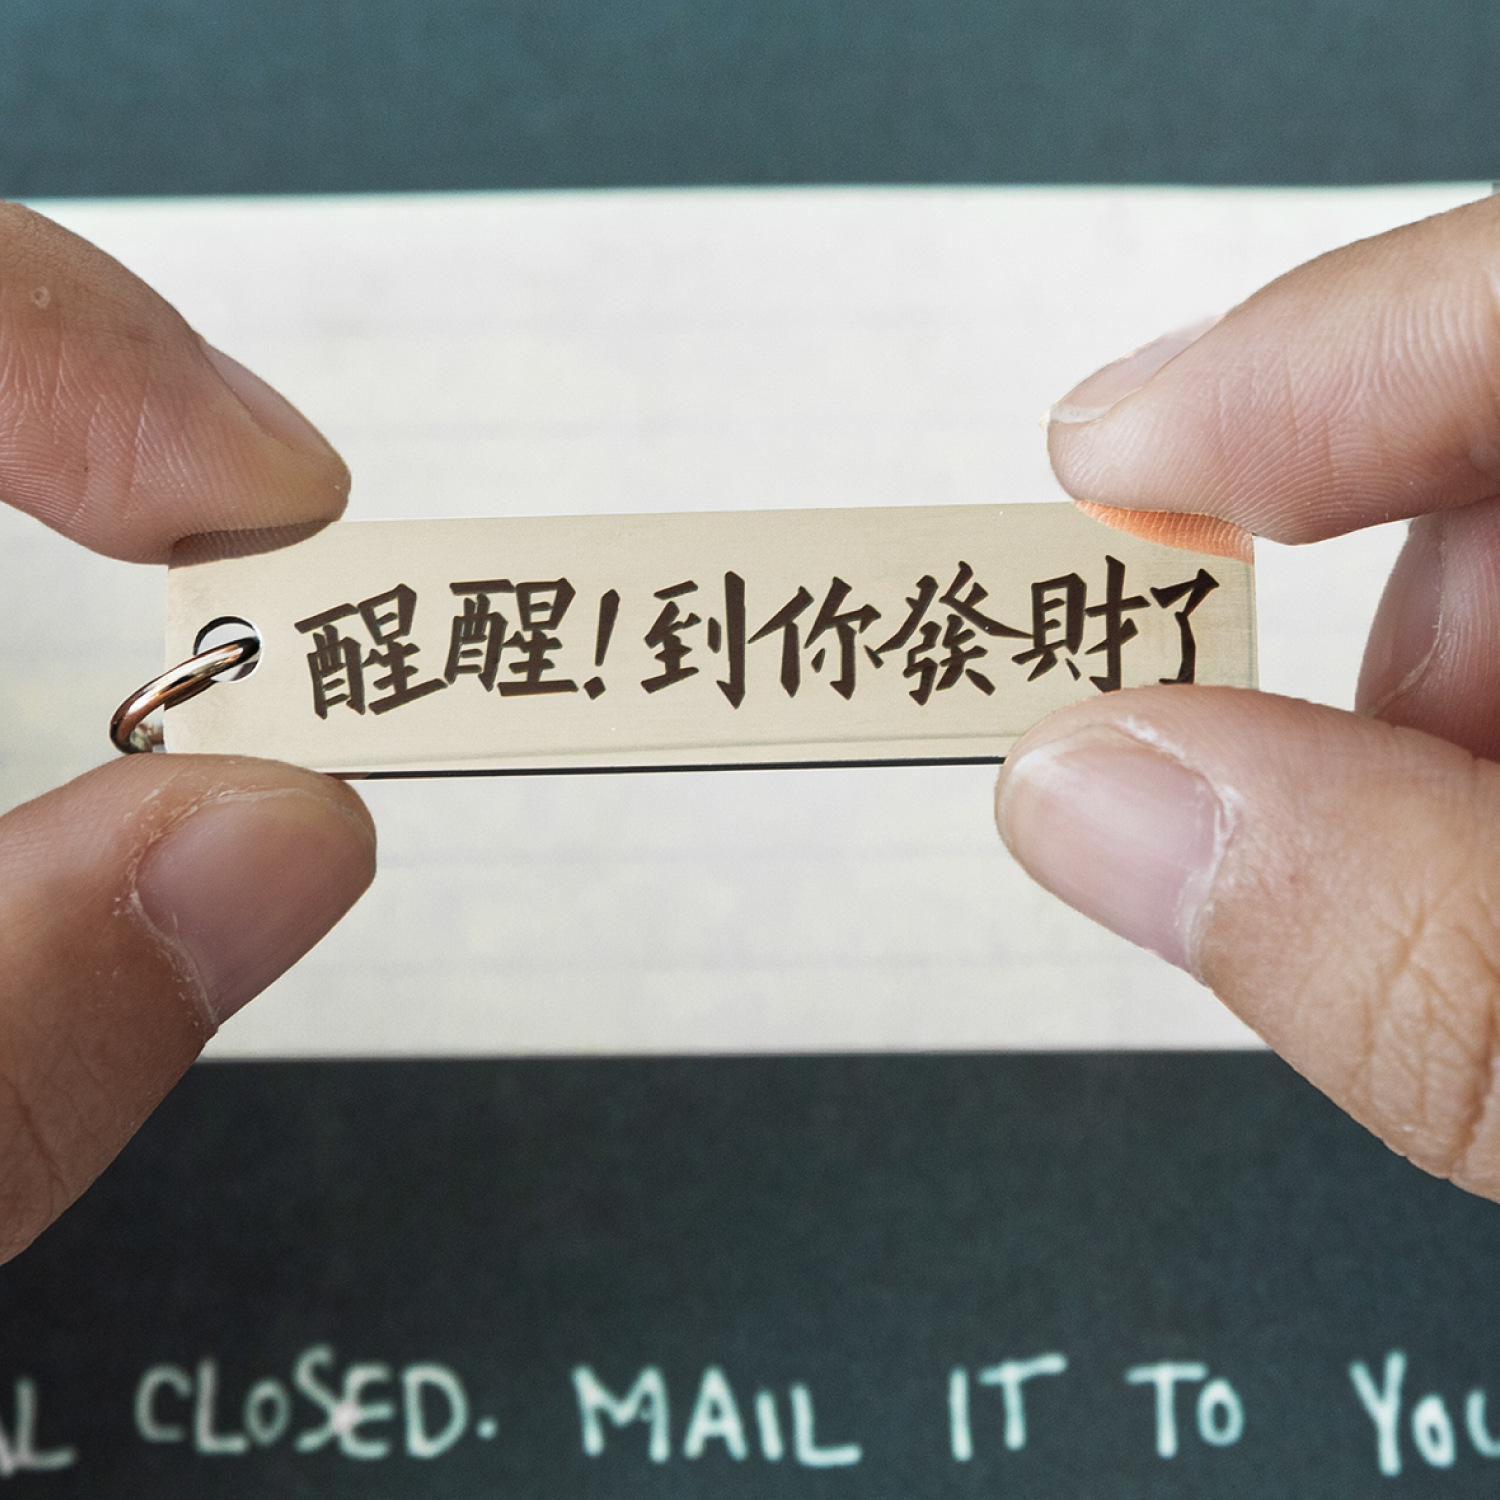 醒醒!到你發財了
CLOSED. MAIL IT TO